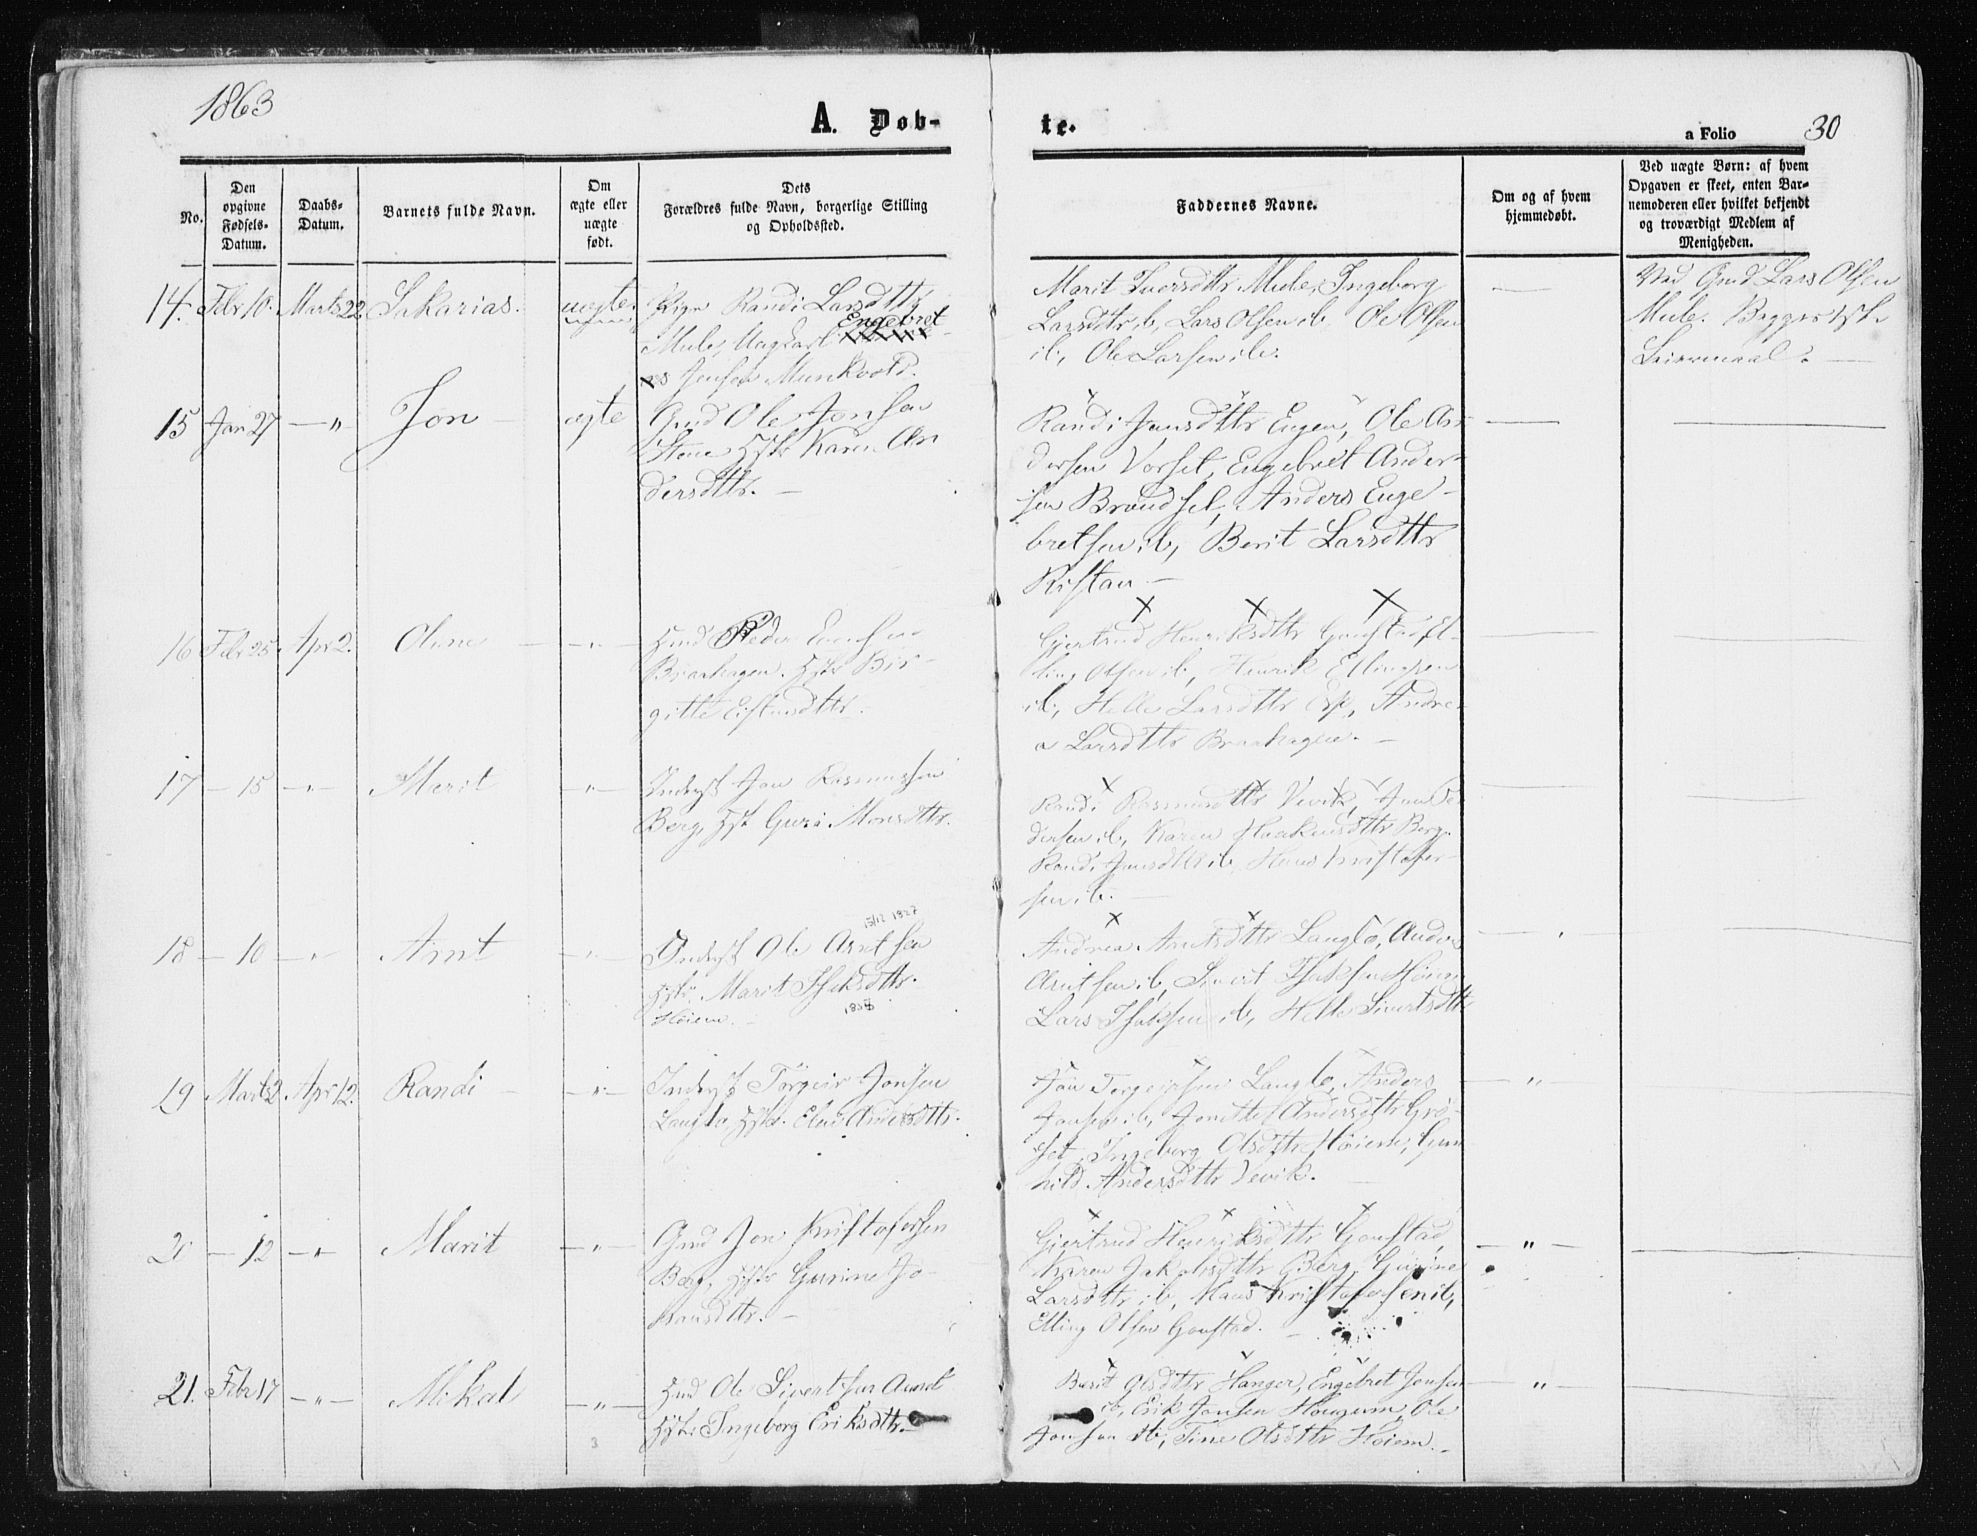 1863
A. Døb-
te.
a Folio 30
No.
Den opgivne Fødsels-Datum.
Daabs-Datum.
Barnets fulde Navn.
Om ægte eller uægte født.
Dets Forældres fulde Navn, borgerlige Stilling og Opholdssted.
Faddernes Navne.
Om og af hvem hjemmedøbt.
Ved uægte Børn: af hvem Opgaven er skeet, enten Bar-nemoderen eller hvilket bekjendt og troværdigt Medlem af Menigheden.
14. Febr 10. Marts 22 Sakarias. uægte. Pige Randi Larsdttr
Mule, Ungkarl Engebret
Jensen Munkvold.
Marit Iversdttr Mule, Ingeborg
Larsdttr ib, Lars Olsen ib. Ole Olsen
ib, Ole Larsen ib.
Ved Gmd Lars Olsen
Mule. Begges 1ste
Leiermaal.
15 Jan 27 — " — Jon — ægte Gmd Ole Jonsen
Stene Hstr Karen An
dersdttr. —
Randi Jonsdttr Engen, Ole An
dersen Vorset, Engebret Ander-
sen Brandset, Anders Enge-
bretsen ib, Berit Larsdttr
Ristan —
16 Febr 25 Apr 2. Oline — " — Hmd Peder
Braahagen. Hstr Bir-
gitte Eistensdttr.
Gjertrud Henriksdttr Gonstad El-
ling Olsen ib, Henrik Ellingsen
ib, Helle Larsdttr Esp, Andre-
a Larsdttr Braahagen. —
17 — 15 — " — Marit — " — Inderst Jon Rasmussen
Berg, Hst Guru Monsdttr.
Randi Rasmusdttr Vevik, Jon Pe
dersen ib, Karen Haakensdttr Berg.
Randi Jonsdttr ib, Hans Kristofer-
sen ib. —
18 — 10 — " — Arnt — " — Inderst Ole Arntsen
15/12 1827
Hstr. Marit Isaksdttr.
Høiem. — 1838
Andrea Arntsdttr Langlo, Anders
Arntsen ib, Sivert Isaksen Høiem
Lars Isaksen ib, Helle Sivertsdttr
19 Marts 2 Apr 12. Randi — " — Inderst Torgeir Jonsen
Langlo, Hstr. Elen Andersdttr.
Jon Torgeirsen Langlo, Anders
Jonsen ib, Jonette Andersdttr Grø-
set, Ingeborg Olsdttr Høiem, Gun
hild Andersdttr Vevik.
— " —
20 — 12 — " — Marit — " — Gmd Jon Kristofersen
Berg, Hstr Gurine Jo-
hansdttr. —
Gjertrud Henriksdttr Gonstad
Karen Jakobsdttr Berg, Gurine
Larsdttr ib, Hans Kristofersen ib,
Elling Olsen Gonstad. —
— " —
21. Febr 17 — " — Mikal — " — Hmd Ole Sivertsen Aunet
Hstr Ingeborg Eriksdttr. —
Berit Olsdttr Hanger, Engebret Jonsen
ib, Erik Jonsen Hougum, Ole
Jonsen ib, Tine Olsdttr Høiem. —
— " —